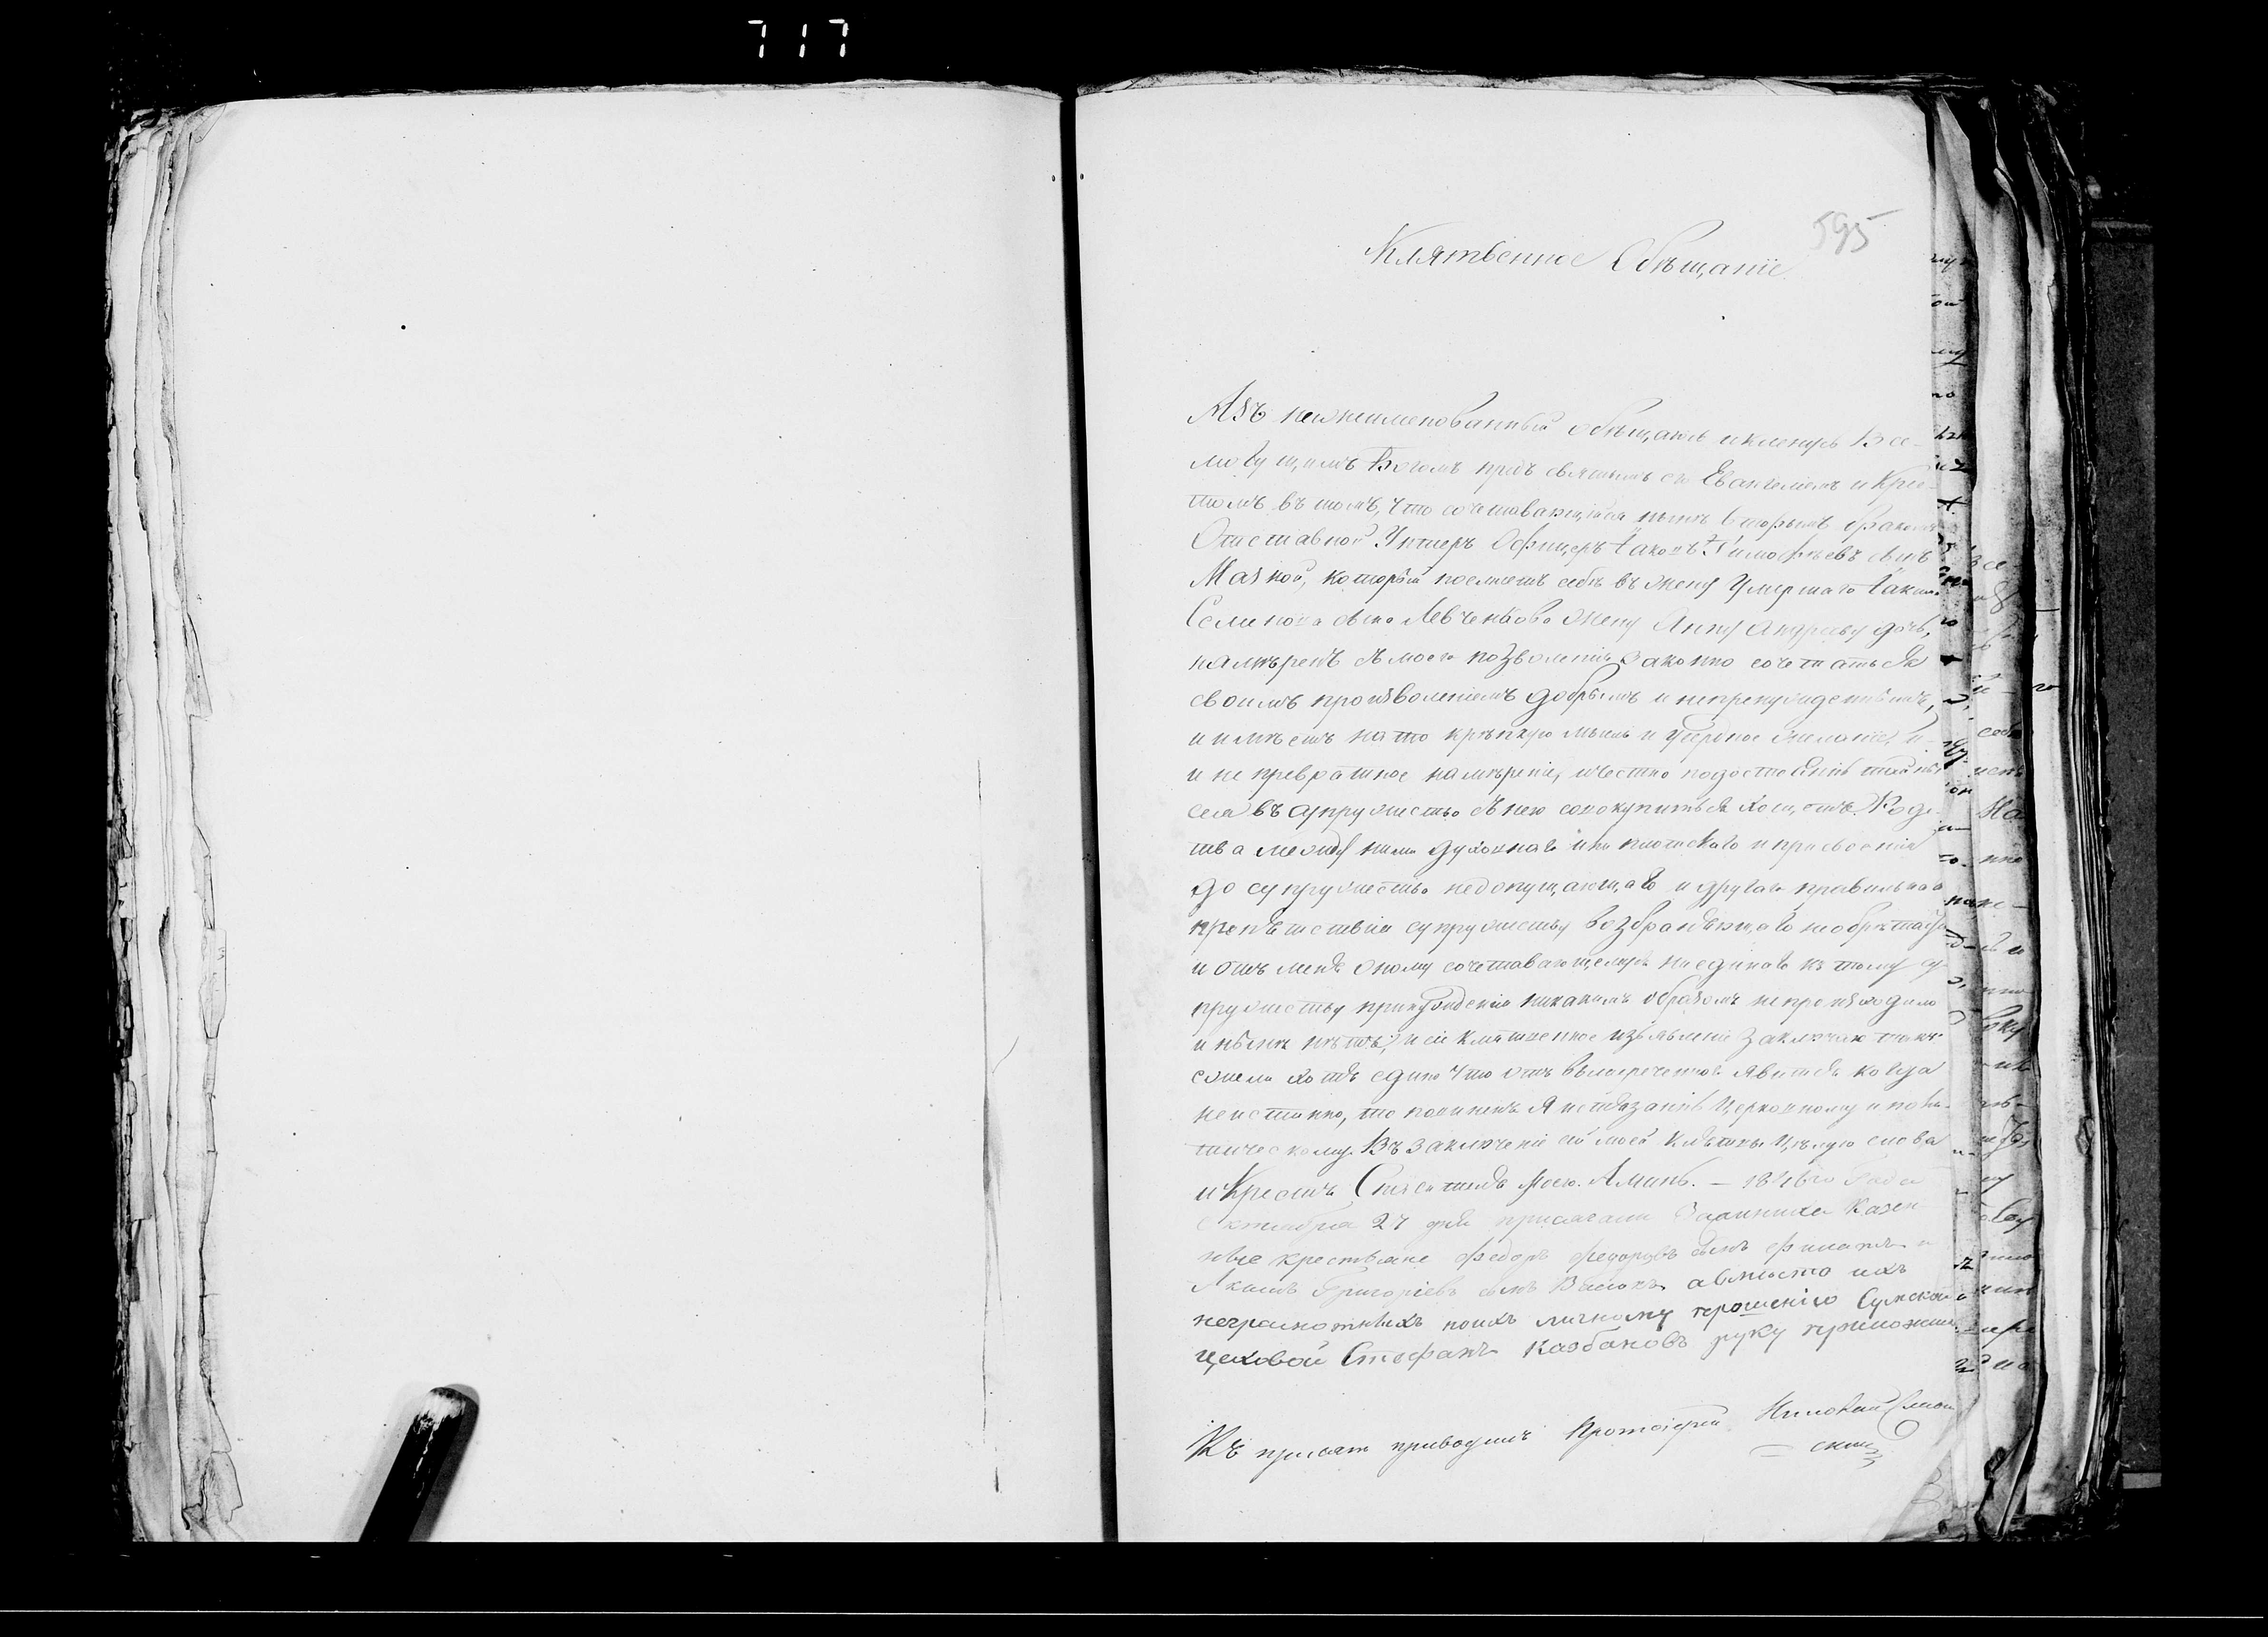 717
595
Клятвенное Обѣщаніе
Азъ нижеименованный обѣщаюсь и кленусь Все-
могущимъ Богомъ предъ святымъ его Евангеліемъ и Крес-
томъ въ томъ, что сочетавающійся нынѣ вторымъ бракомъ
Отставной Унтеръ Офицеръ Іаковъ Тимофѣевъ сынъ
Мазной, который поемлетъ себѣ въ жену умершаго
сына Левченкова жену Анну Андрееву дочь,
намѣренъ съ моего позволенія законно сочетаться
своимъ произволеніемъ добрымъ и непренужденнымъ,
и имѣетъ на то крѣпкую мысль и усердное желаніе, и
и не превратное намѣреніе, и честно по достоянію тайны
сея въ супружество съ нею совокупиться хощетъ. Родс-
тва между ними духовнаго и ни плотскаго и присвоенія
до супружества недопущающаго и другаго правильнаго
препятствія супружеству возбраняющаго не обрѣтается
и отъ меня оному сочетавающемуся ни единаго къ тому су-
пружеству принужденія никакимъ образомъ не происходило
и нынѣ нѣтъ; и сіе клятвенное изъявленіе заключаю такъ:
ежели хотя едино что отъ вышереченнаго явится когда
неистинно, то повиненъ я истязанію Церковному и поли-
тическому. Въ заключеніе сей моей клятвы цѣлую слова
и Крестъ Спасителя моего. Аминь. — 1846го года
Октября 27 дня присягали Казен-
ные крестьяне Федоръ Федоровъ сынъ и
Якимъ Григоріевъ сынъ а вмѣсто ихъ
неграмотныхъ поихъ личному прошенію Сумской
цеховой Стефанъ Казбановъ руку приложилъ
Къ присягѣ приводилъ Протоіерей Николай